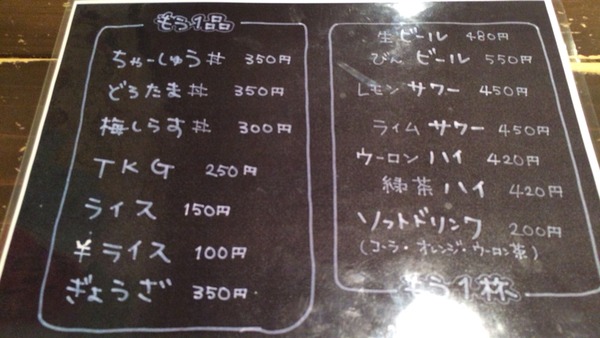 もう1品
ちゃーしゅう丼 350円
どろたま丼 350円
梅しらす丼 300円
TKG 250円
ライス 150円
半ライス 100円
ぎょうざ 350円
生ビール 480円
びんビール 550円
レモンサワー 450円
ライムサワー 450円
ウーロンハイ 420円
緑茶ハイ 420円
ソフトドリンク 200円
(コーラ・オレンジ・ウーロン茶)
もう1杯